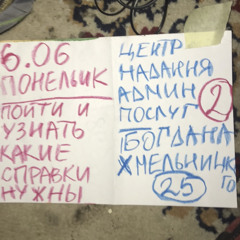 6.06
ПОНЕЛЬИК
ПОЙТИ И
УЗНАТЬ
КАКИЕ
СПРАВКИ
НУЖНЫ
ЦЕНТР
НАДАННЯ
АДМИН
ПОСЛУГ 2
БОГДАНА
ХМЕЛЬНИЦК
ГО
25